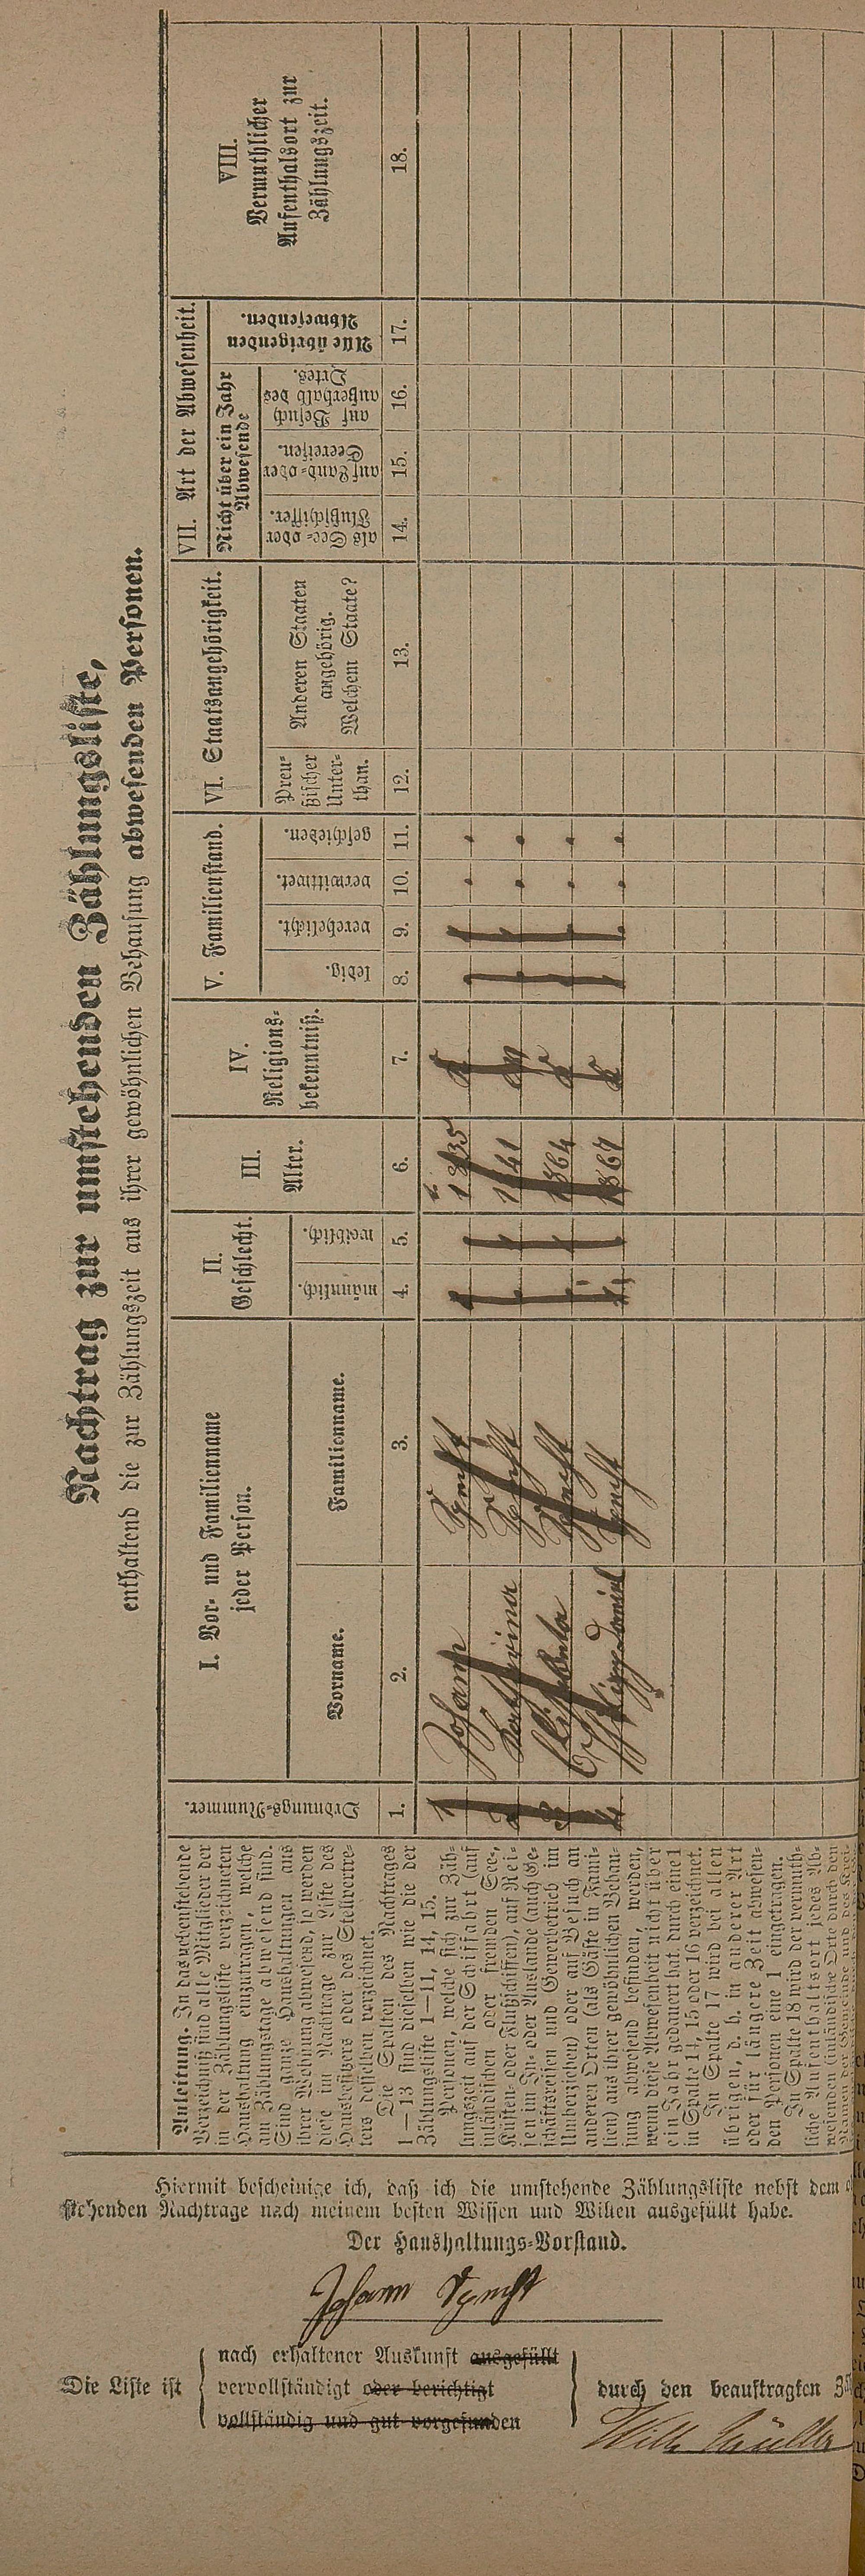 Nachtrag zur umstehenden Zählungsliste,
enthaltend die zur Zählungszeit aus ihrer gewöhnlichen Behausung abwesenden Personen.
Anleitung. In das nebenstehende
Verzeichniß sind alle Mitglieder der
in der Zählungsliste verzeichneten
Haushaltung einzutragen, welche
am Zählungstage abwesend sind.
Sind ganze Haushaltungen aus
ihrer Wohnung abwesend, so werden
diese im Nachtrage zur Liste des
Hausbesitzers oder des Stellvertre-
ters desselben verzeichnet.
Die Spalten des Nachtrages
1—13 sind dieselben wie die der
Zählungsliste 1—11, 14, 15.
Personen, welche sich zur Zäh-
lungszeit auf der Schiffahrt (auf
inländischen oder fremden See-,
Küsten- oder Flußschiffen), auf Rei-
sen im In- oder Auslande (auch Ge-
schäftsreisen und Gewerbebetrieb im
Umherziehen) oder auf Besuch an
anderen Orten (als Gäste in Fami-
lien) aus ihrer gewöhnlichen Behau-
sung abwesend befinden, werden,
wenn diese Abwesenheit nicht über
ein Jahr gedauert hat, durch eine 1
in Spalte 14, 15 oder 16 verzeichnet.
In Spalte 17 wird bei allen
übrigen, d. h. in anderer Art
oder für längere Zeit abwesen-
den Personen eine 1 eingetragen.
In Spalte 18 wird der vermuth-
liche Aufenthaltsort jedes Ab-
wesenden (inländische Orte durch den
Namen der Gemeinde und des Krei-
Ordnungs-Nummer.
I. Vor- und Familienname
jeder Person.
Vorname.
Familienname.
II.
Geschlecht.
männlich.
weiblich.
III.
Alter.
IV.
Religions-
bekenntniß.
V. Familienstand.
ledig.
verehelicht.
verwittwet.
geschieden.
VI. Staatsangehörigkeit.
Preu-
ßischer
Unter-
than.
Anderen Staaten
angehörig.
Welchem Staate?
VII. Art der Abwesenheit.
Nicht über ein Jahr
Abwesende
als See- oder
Flußschiffer.
auf Land- oder
Seereisen.
auf Besuch
außerhalb des
Ortes.
Alle übrigenden
Abwesenden.
VIII.
Vermuthlicher
Aufenthalsort zur
Zählungszeit.
1. 2. 3. 4. 5. 6. 7. 8. 9. 10. 11. 12. 13. 14. 15. 16. 17. 18.
1 Johann 1835
2 Katharina 1841
3 Elisabeta 1864
4 Philipp Daniel 1867
Hiermit bescheinige ich, daß ich die umstehende Zählungsliste nebst dem
stehenden Nachtrage nach meinem besten Wissen und Willen ausgefüllt habe.
Der Haushaltungs-Vorstand.
Johann
Die Liste ist
nach erhaltener Auskunft ausgefüllt
vervollständigt oder berichtigt
vollständig und gut vorgefunden
durch den beauftragten
Wilh. Müller